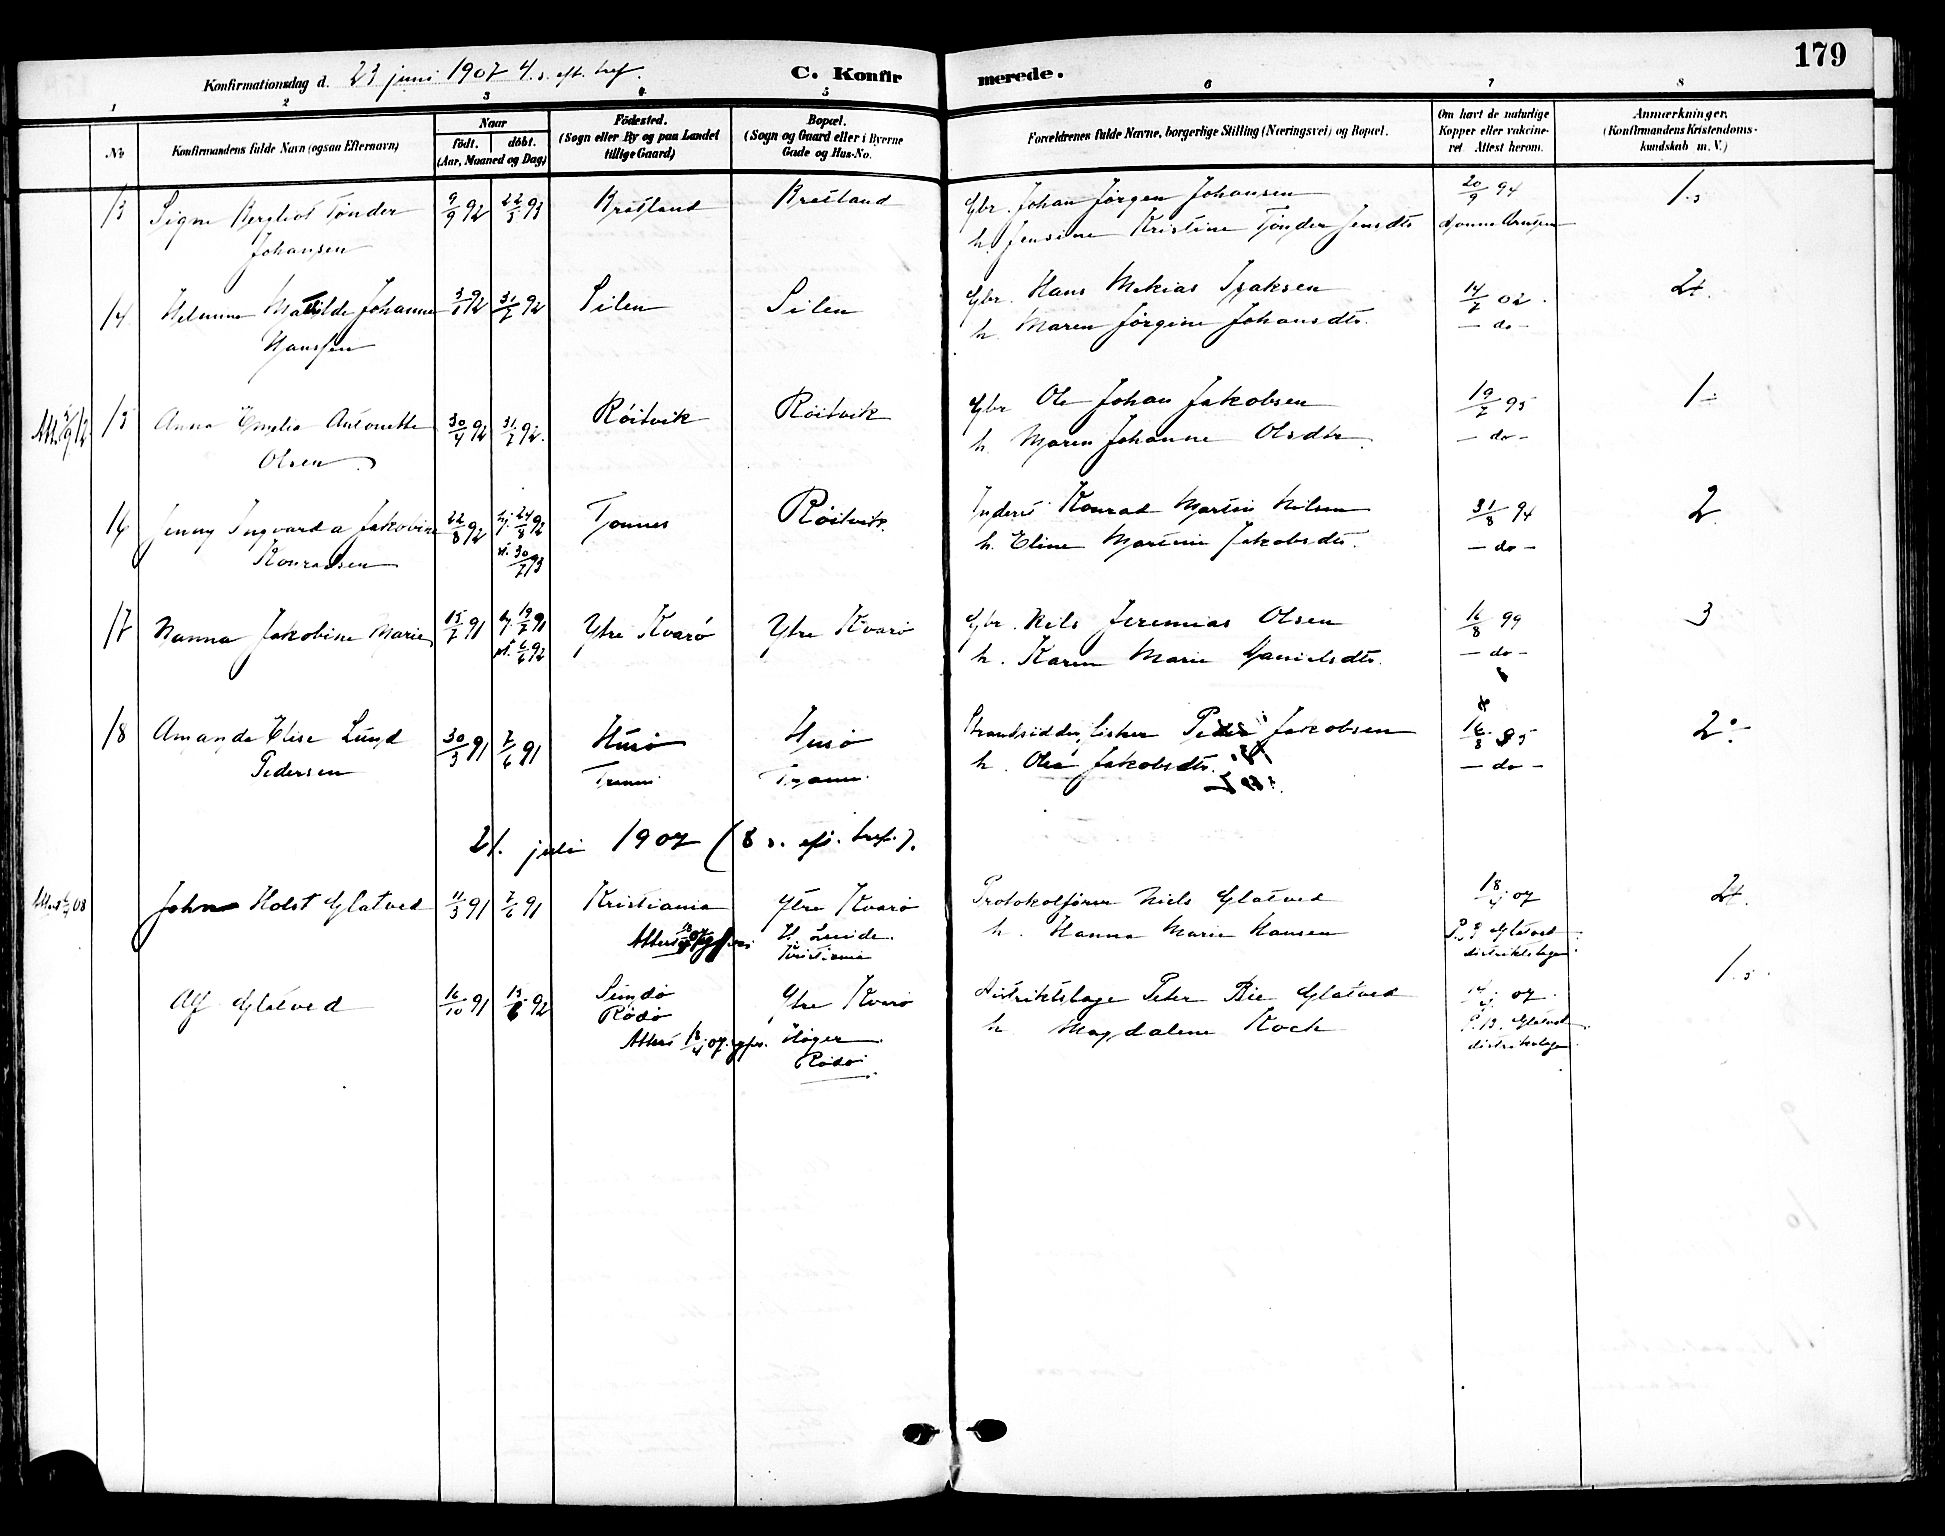 179
Konfirmationsdag d. 23 juni 1907 4. s. eft. tref.
C. Konfirmerede.
1 2 3 4 5 6 7 8
No
Konfirmandens fulde Navn (ogsaa Efternavn)
Naar
födt. döbt.
(Aar, Maaned og Dag)
Födested.
(Sogn eller By og paa Landet
tillige Gaard)
Bopæl.
(Sogn og Gaard eller i Byerne
Gade og Hus-No.
Forældrenes fulde Navne, borgerlige Stilling (Næringsvei) og Bopæl.
Om havt de naturlige
Kopper eller vakcine-
ret Attest herom.
Anmærkninger.
(Konfirmandens Kristendoms-
kundskab m. V.)
13 Signe Bergliot Tønder 9/9 92 22/5 93 Bratland Bratland Gbr. Johan Jørgen Johansen 20/9 94 1.5
Johansen h. Jensine Kristine Tønder Jensdtr
14 Helmine Matilde Johanne 31/7 92 Selen Selen Gbr. Hans Mekias Isaksen 14/7 02 2+.
Hanssen h. Maren Jørgine Johansdtr. - do -
15 Anna Emelia Antonette 30/4 92 31/7 92. Röitvik Röitvik Gbr Ole Johan Jakobsen 19/7 95 1 -
Olsen h. Maren Johanne Olsdtr - do -
16 Jenny Ingvarda Jakobine 22/8 92 hj. 24/8 92 Tonnes Röitvik. Inderst Konrad Martin Nilsen 31/8 94 2
Konradsen st. 30/7 93 h. Eline Martine Jakobsdtr. - do -
17 Nanna Jakobine Marie 15/7 91 hj. 19/7 91 Ytre Kvarö Ytre Kvarö Gbr. Nils Jeremias Olsen 16/8 99 3
st. 6/6 92 h. Karen Marie Danielsdtr. - do -
18 Amanda Elise Lund 30/3 91 7/6 91 Husö Husö Strandsidder, fisker Peder Jakobsen 16/8 95 2
Pedersen Træna Træna h. Olea Jakobsdtr. - do -
21. juli 1907 (8 s. eft. tref.).
John Holst Glatved 11/3 91 7/6 91 Kristiania Ytre Kvarö Protokolfører Niels Glatved 18/4 07 2+.
h. Hanna Marie Hansen
Kristiania distriktslæge
Alf Glatved 16/10 91 92 Sundö Ytre Kvarö Distriktslæge Peter Bie Glatved 07. 1.5
Rödö h Magdalene Koch P. B. Glatved
Attest 18/4 07 distriktslæge
Rödö.